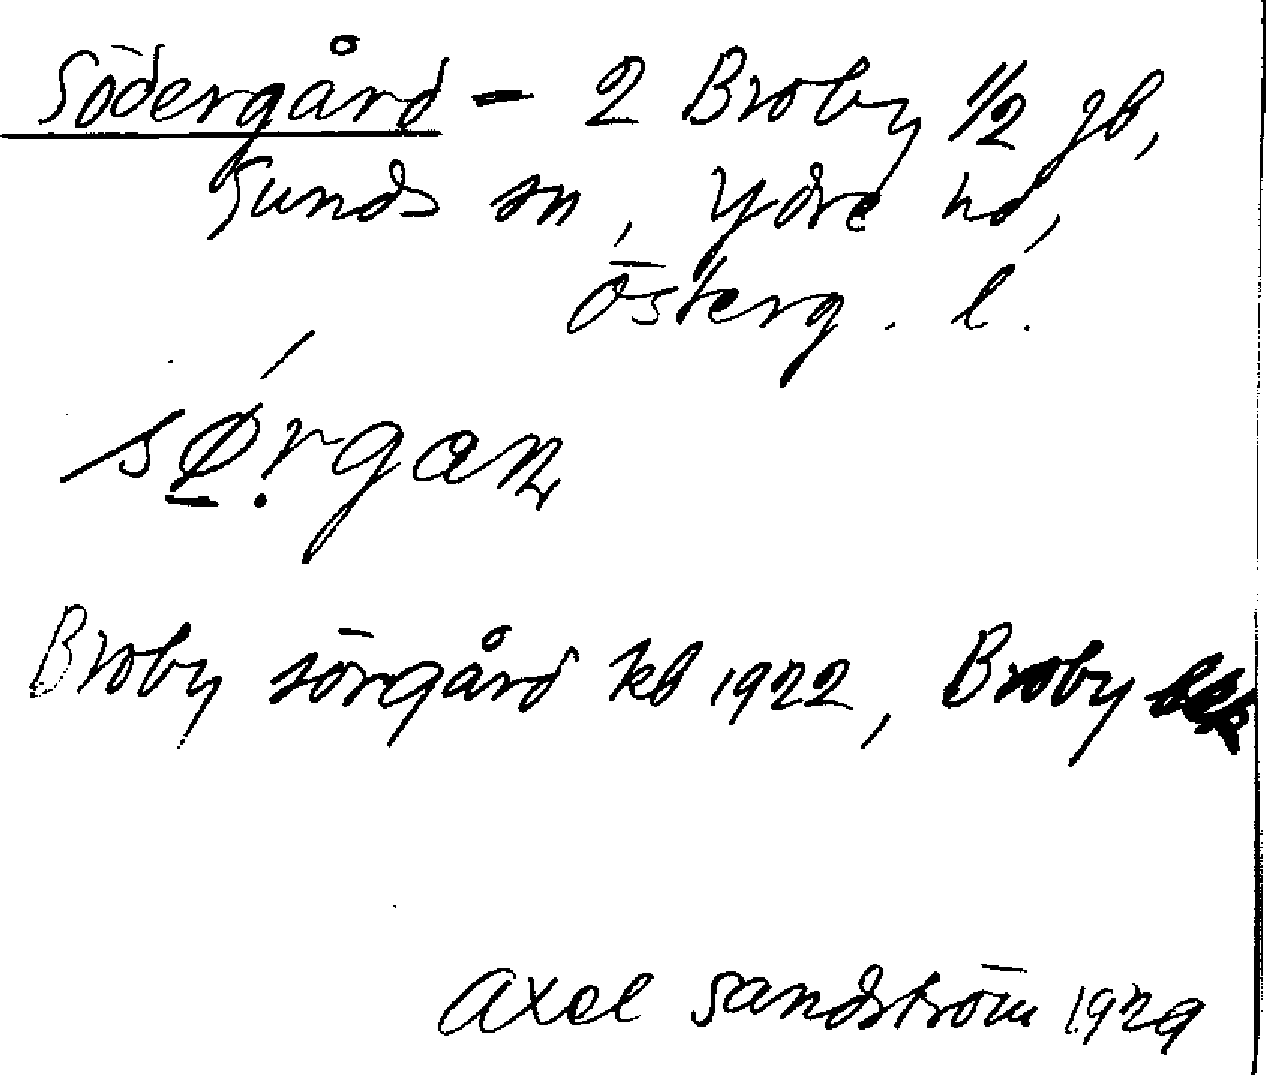 Södergård - 2 Broby 1/2 gb,
Sunds sn, Ydre hd,
Österg. l.
Broby sörgård kb 1922, Broby
Axel Sandström 1929